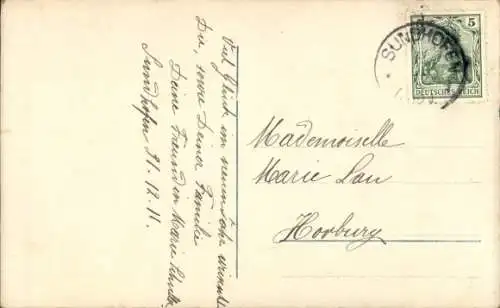 Viel Glück im neuen Jahre wünscht
Dir, sowie Deiner Familie
Deine Freundin Marie
Sundhofen 31.12.11.
5
DEUTSCHES REICH
SUNDHOFEN
Mademoiselle
Marie Lau
Horburg